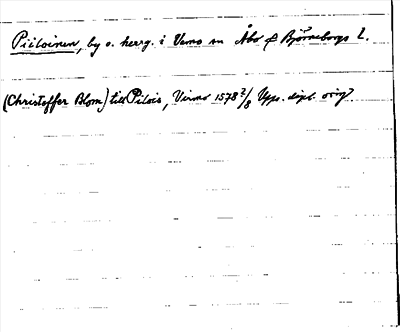 Piiloinen, by o. herrg. i Vemo sn Åbo & Björneborgs l.
(Christoffer Blom) till Pilois, Virmo 1578 2/8 Upps. dipl. orig.